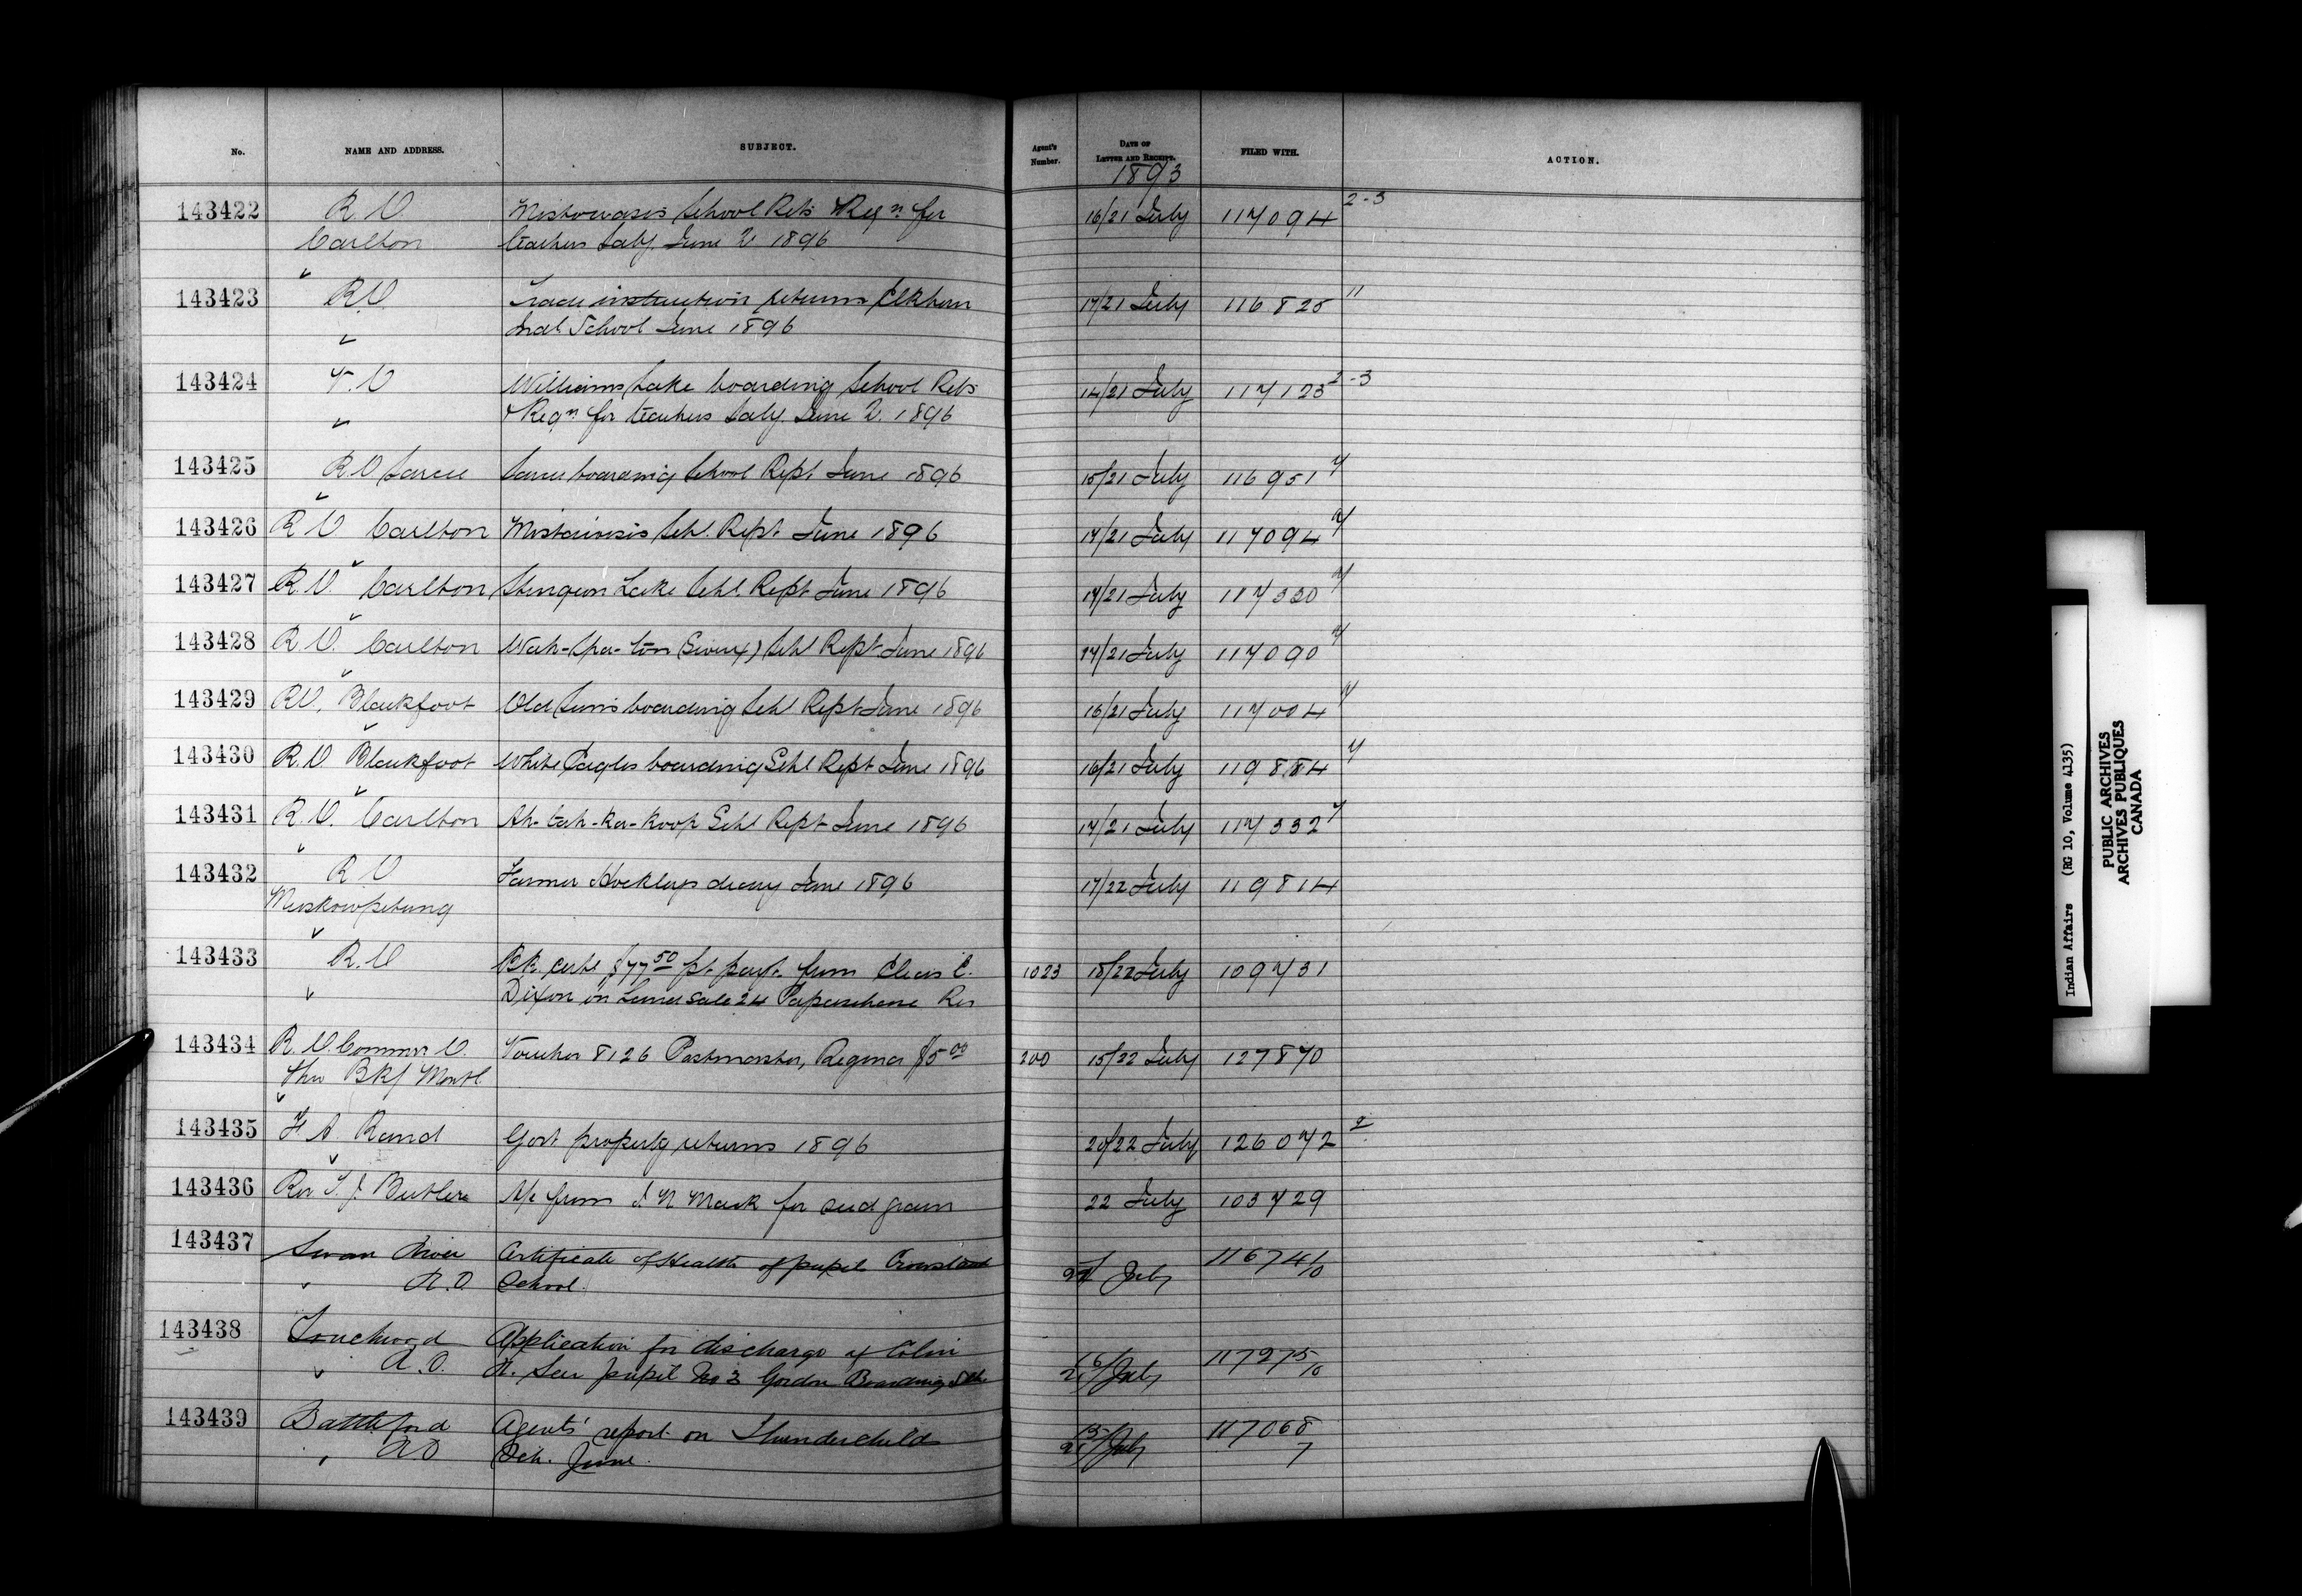 No. NAME AND ADDRESS. SUBJECT. Agent's Number. DATE OF LETTER AND RECEIPT. FILED WITH. ACTION.
1893
143422 R.O. Mistowasis School Rets & Reqn for 16/21 July 117094 2-3
Carlton teachers saly. June 2 1896
143423 R.O. Trade instruction returns Elkhorn 17/21 July 116825 11
Indl School June 1896
143424 V.O Williams Lake boarding School Rets 14/21 July 117123 2-3
& Reqn for teachers saly. June 2. 1896
143425 R.O Sarcee Sarcee boarding School Rept. June 1896 15/21 July 116951 7
143426 R O Carlton Mistawasis Schl. Rept. June 1896 17/21 July 117094 7
143427 R.O. Carlton Sturgeon Lake Schl. Rept June 1896 17/21 July 117330 7
143428 R.O. Carlton Wah-spa-ton (Sioux) Schl Rept June 1896 17/21 July 117090 7
143429 RO, Blackfoot Old Suns boarding Schl Rept June 1896 16/21 July 117004 7
143430 R.O Blackfoot White Eagles boarding Schl Rept June 1896 16/21 July 119884 7
143431 R.O. Carlton Ah-tah-ka-koop Schl Rept June 1896 17/21 July 117332 7
143432 R O Farmer Hockleys diary June 1896 17/22 July 119814
Muskowpetung
143433 R.O Bk. cert $77 50 pt. payt. from Chas C. 1023 18/22 July 109731
Dixon on sale 24 Res
143434 R.O. Commr O. Voucher 8126 Postmaster, Regina $5 00 200 15/22 July 127870
Thro Bk of Montl
143435 F A. Rand Govt property returns 1896 20/22 July 126072 2
143436 Rev T. J. Butler A/c from J. N Mack for seed grain 22 July 103729
143437 Swan River Certificate of Health of pupils Crowstand July 116741/10
R.O. School.
143438 Touchwood Application for discharge of Colin 16/21 July 117275/10
R.O. pupil No 3 Gordon Boarding Schl
143439 Battleford Agents' report on Thunderchilds 15/21 July 117068
R.O Sch. June. 7
Indian Affairs (RG 10, Volume 4135)
PUBLIC ARCHIVES
ARCHIVES PUBLIQUES
CANADA